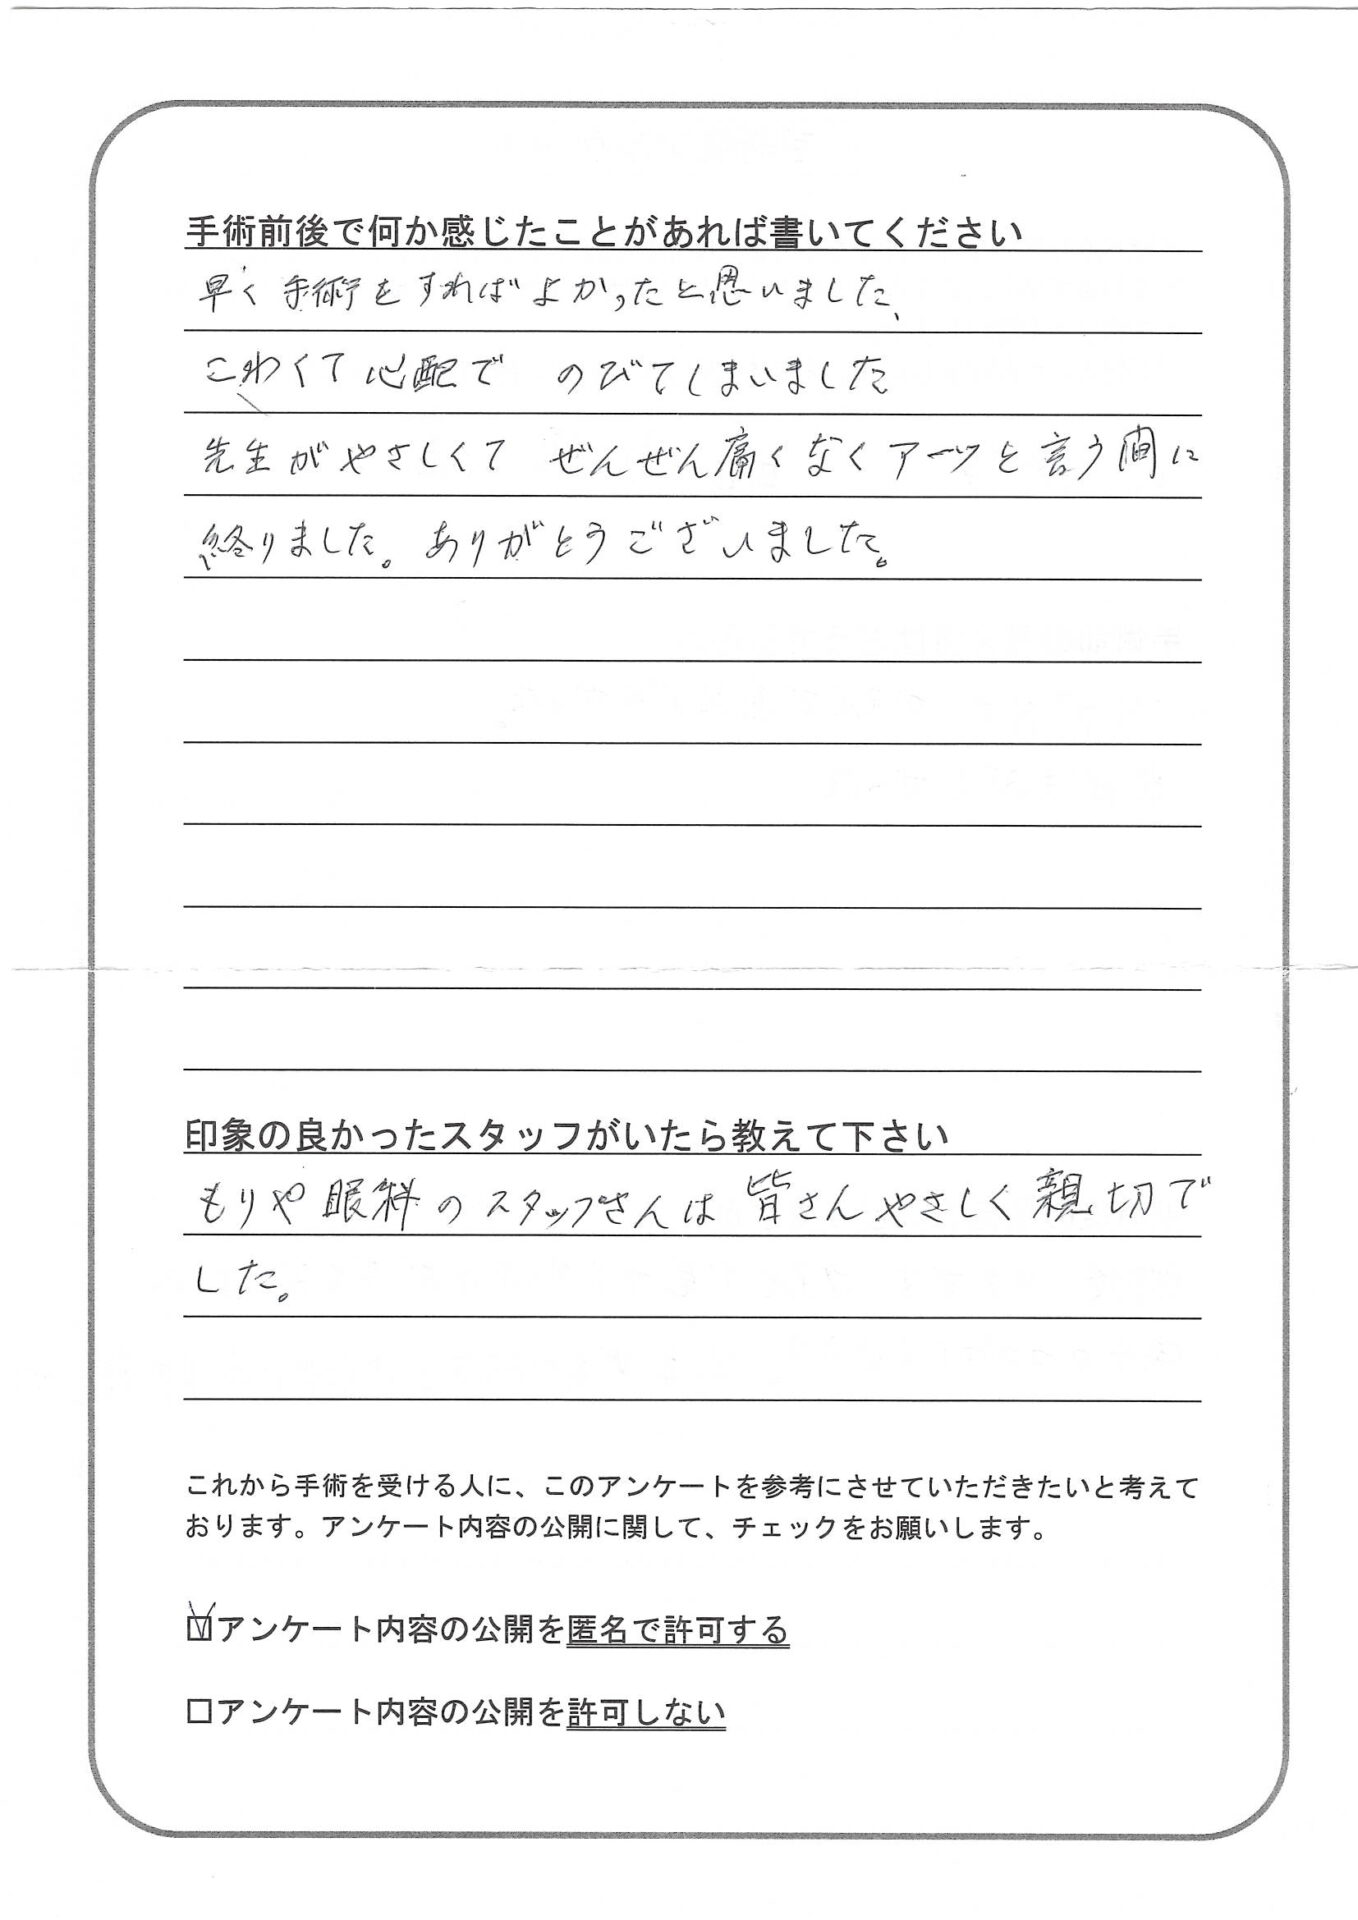 手術前後で何か感じたことがあれば書いてください
早く手術をすればよかったと思いました、
こわくて心配で のびてしまいました
先生がやさしくて ぜんぜん痛くなくアーッと言う間に
終りました。ありがとうございました。
印象の良かったスタッフがいたら教えて下さい
もりや眼科のスタッフさんは皆さんやさしく親切で
した。
これから手術を受ける人に、このアンケートを参考にさせていただきたいと考えて
おります。アンケート内容の公開に関して、チェックをお願いします。
☑アンケート内容の公開を匿名で許可する
□アンケート内容の公開を許可しない